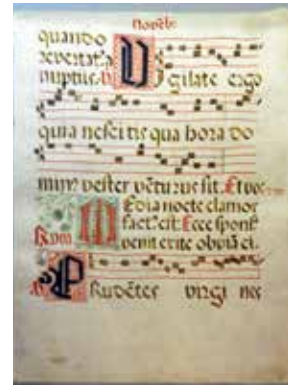 quando
revertat'a
nuptiis. Vigilate ergo
quia nescitis qua hora do
min' vester vẽturus sit. Et vos
Media nocte clamor
fact' est: Ecce spons'
venit exite obviã ei.
Prudẽtes virgines